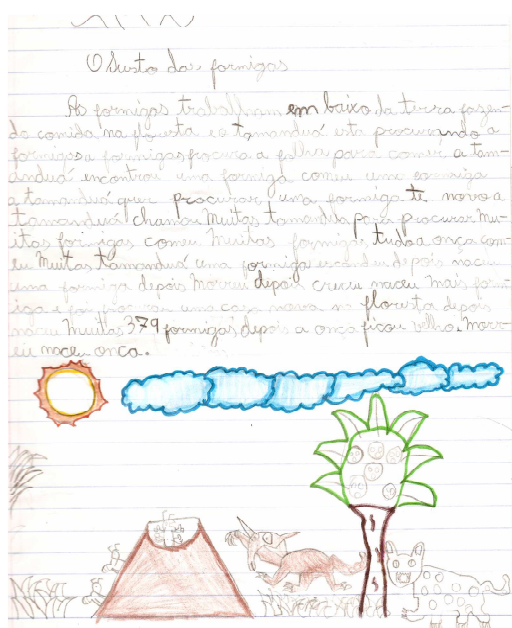 O Susto das formigas
As formigas trabalham em baixo da terra fazen-
do comida na floresta e o tamanduá esta procurando a
formiga a formiga procura a folha para comer a tam-
anduá encontrou uma formiga comeu uma
a tamanduá quer procurar uma formiga te novo a
tamanduá chamou Muitas para procurar Mu-
itas formigas comeu Muitas formigas tudo a onça com-
eu Muitas tamanduá uma formiga depois naceu
uma formiga depois Morreu depois naceu Mais form-
iga e foi uma casa nova na floresta depois
naceu Muitas 379 formigas depois a onça ficou velho. Morr-
eu naceu onça.